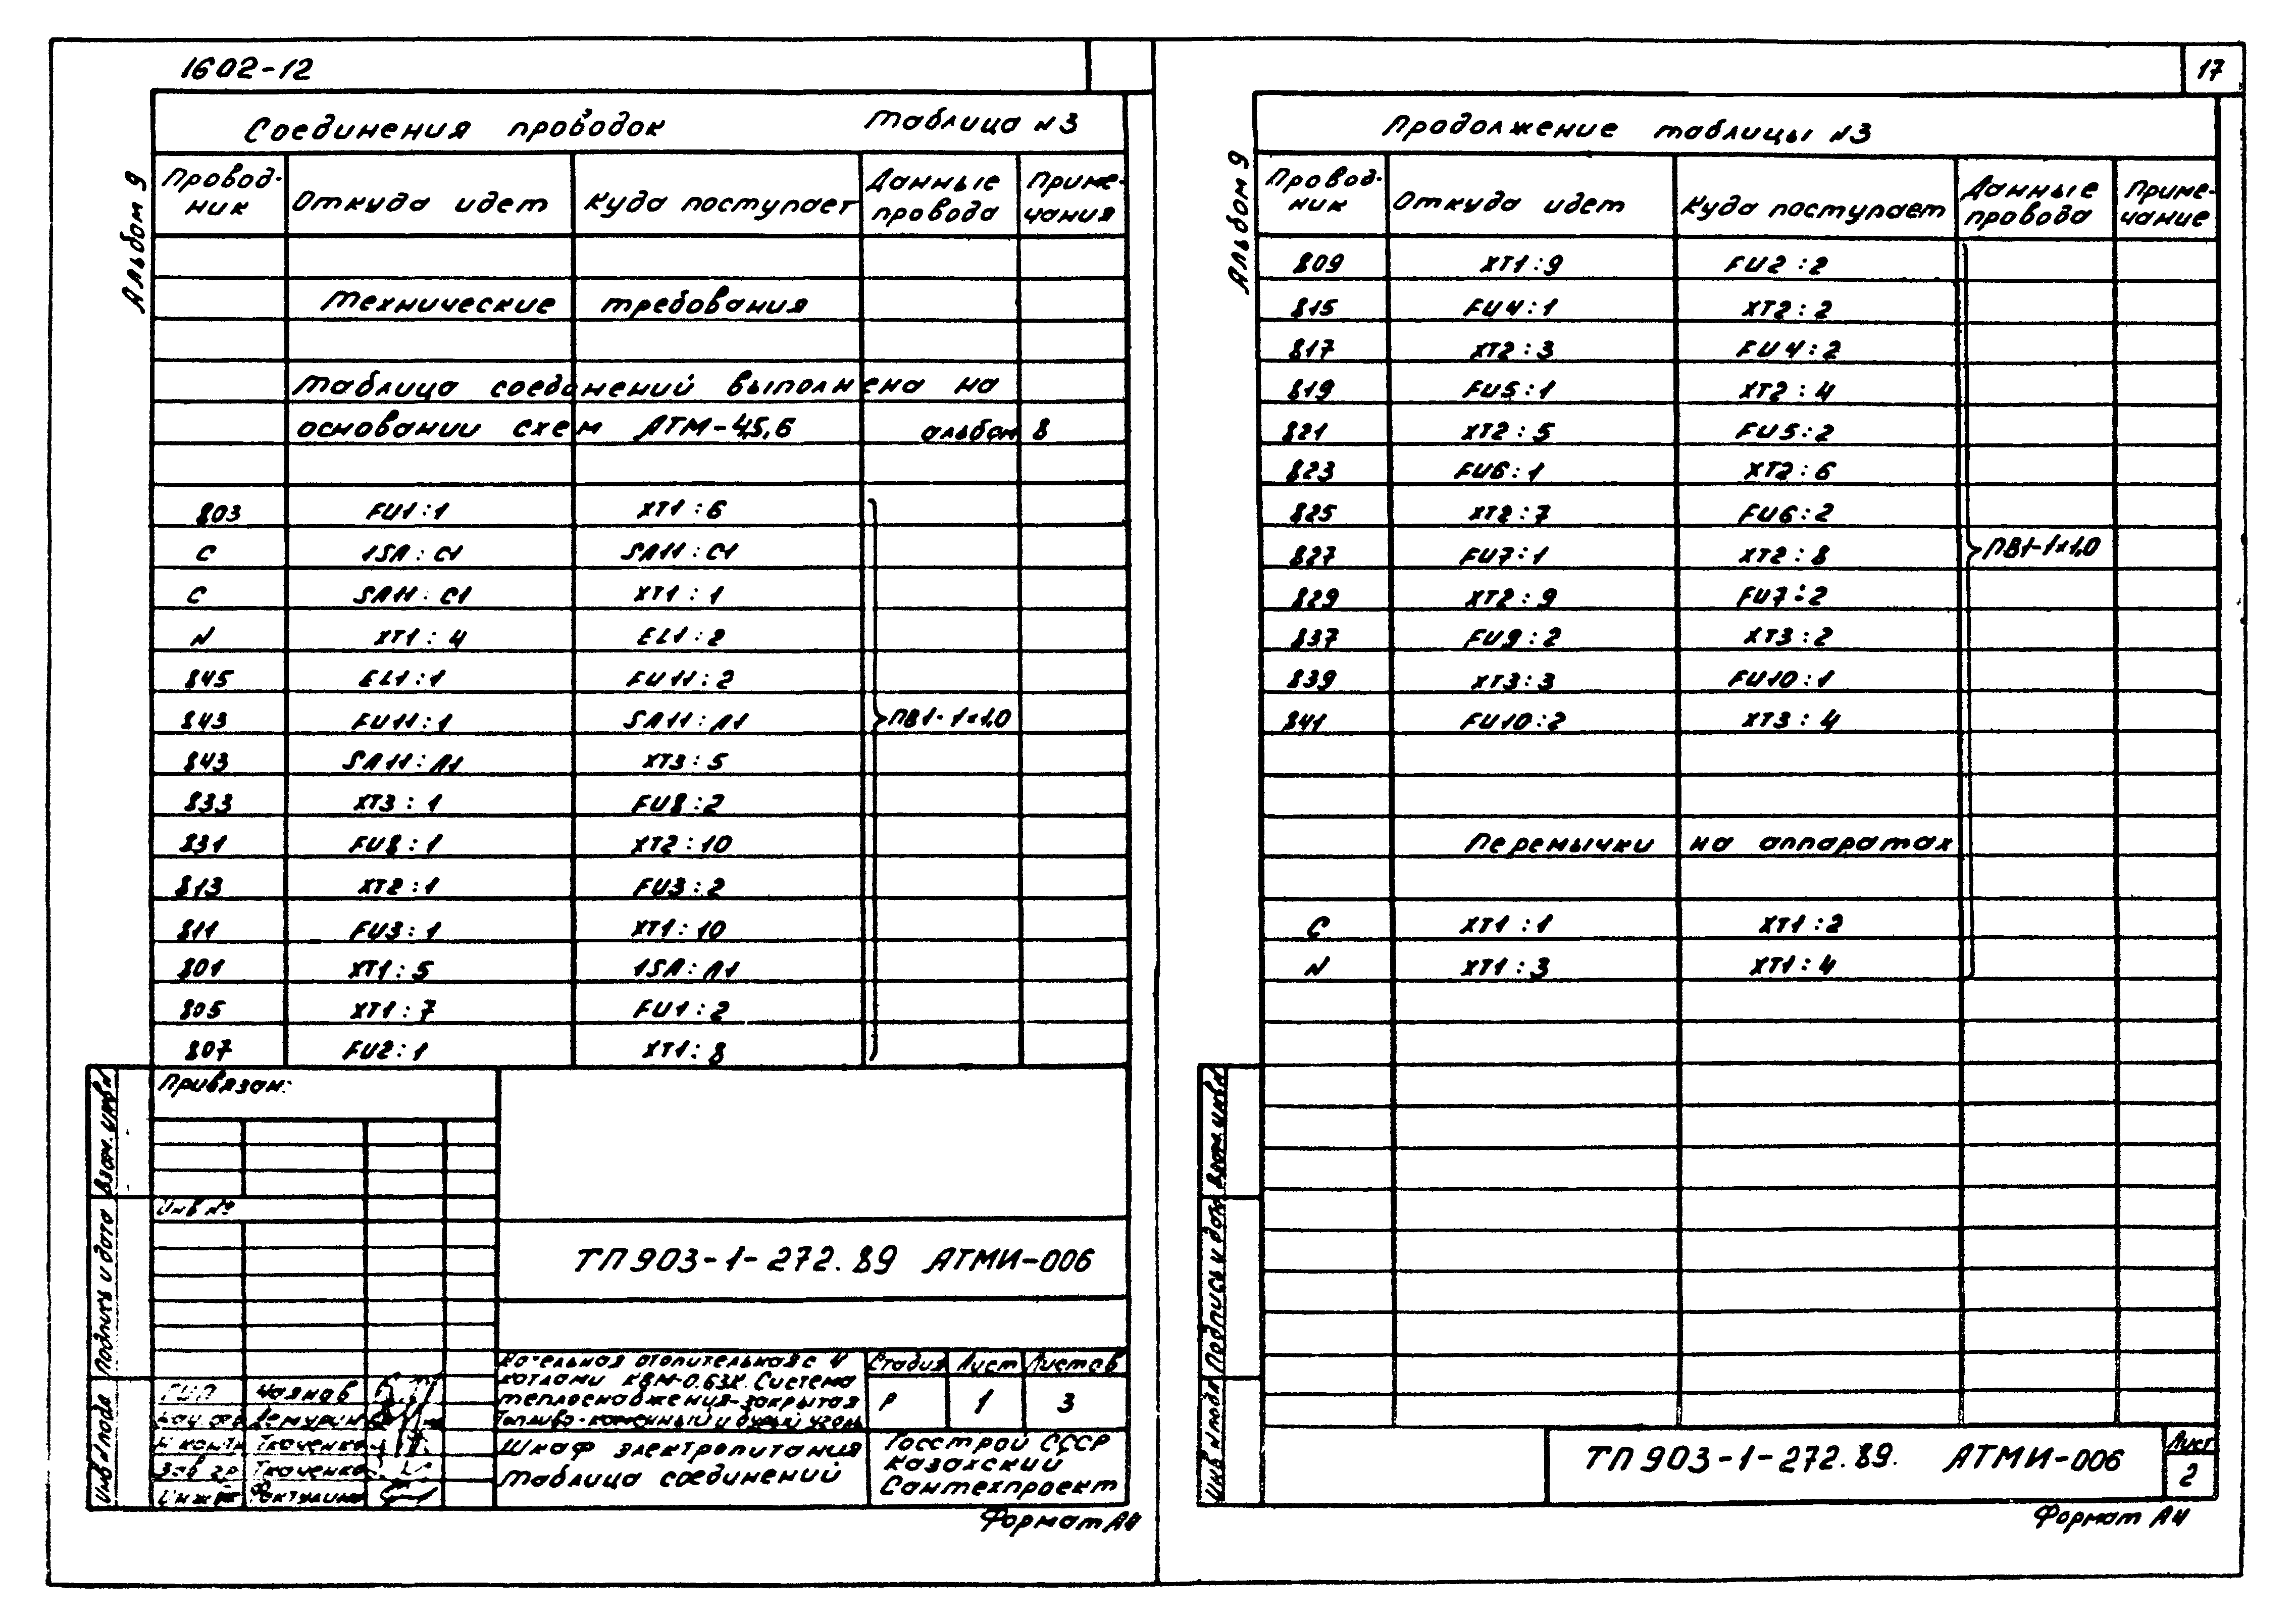 1602-12
Альбом 9
Соединения проводок Таблица N3
Провод-ник Откуда идет Куда поступает Данные провода Приме-чания
Технические требования
Таблица соединений выполнена на
основании схем АТМ-4,5,6 альбом 8
803 FU1:1 XT1:6
C 1SA:C1 SA11:C1
C SA11:C1 XT1:1
N XT1:4 EL1:2
845 EL1:1 FU11:2
843 FU11:1 SA11:A1 ПВ1-1×1,0
843 SA11:A1 XT3:5
833 XT3:1 FU8:2
831 FU8:1 XT2:10
813 XT2:1 FU3:2
811 FU3:1 XT1:10
801 XT1:5 1SA:A1
805 XT1:7 FU1:2
807 FU2:1 XT1:8
Привязан:
Инв №
ТП 903-1-272.89 АТМИ-006
Котельная отопительная с 4
котлами КВМ-0.63К. Система
теплоснабжения-закрытая
Топливо-каменный и бурый уголь
Стадия Лист Листов
Р 1 3
ГИП Чаянов
Н контр Ткаченко
Зав гр Ткаченко
Шкаф электропитания
Таблица соединений
Госстрой СССР
Казахский
Сантехпроект
Взам. инв N
Подпись и дата
Инв N подл
Формат А4
17
Альбом 9
Продолжение таблицы N3
Провод-ник Откуда идет Куда поступает Данные провода Приме-чание
809 XT1:9 FU2:2
815 FU4:1 XT2:2
817 XT2:3 FU4:2
819 FU5:1 XT2:4
821 XT2:5 FU5:2
823 FU6:1 XT2:6
825 XT2:7 FU6:2
827 FU7:1 XT2:8 ПВ1-1×1,0
829 XT2:9 FU7:2
837 FU9:2 XT3:2
839 XT3:3 FU10:1
841 FU10:2 XT3:4
Перемычки на аппаратах
C XT1:1 XT1:2
N XT1:3 XT1:4
Взам. инв N
Подпись и дата
Инв N подл
ТП 903-1-272.89. АТМИ-006
Лист
2
Формат А4